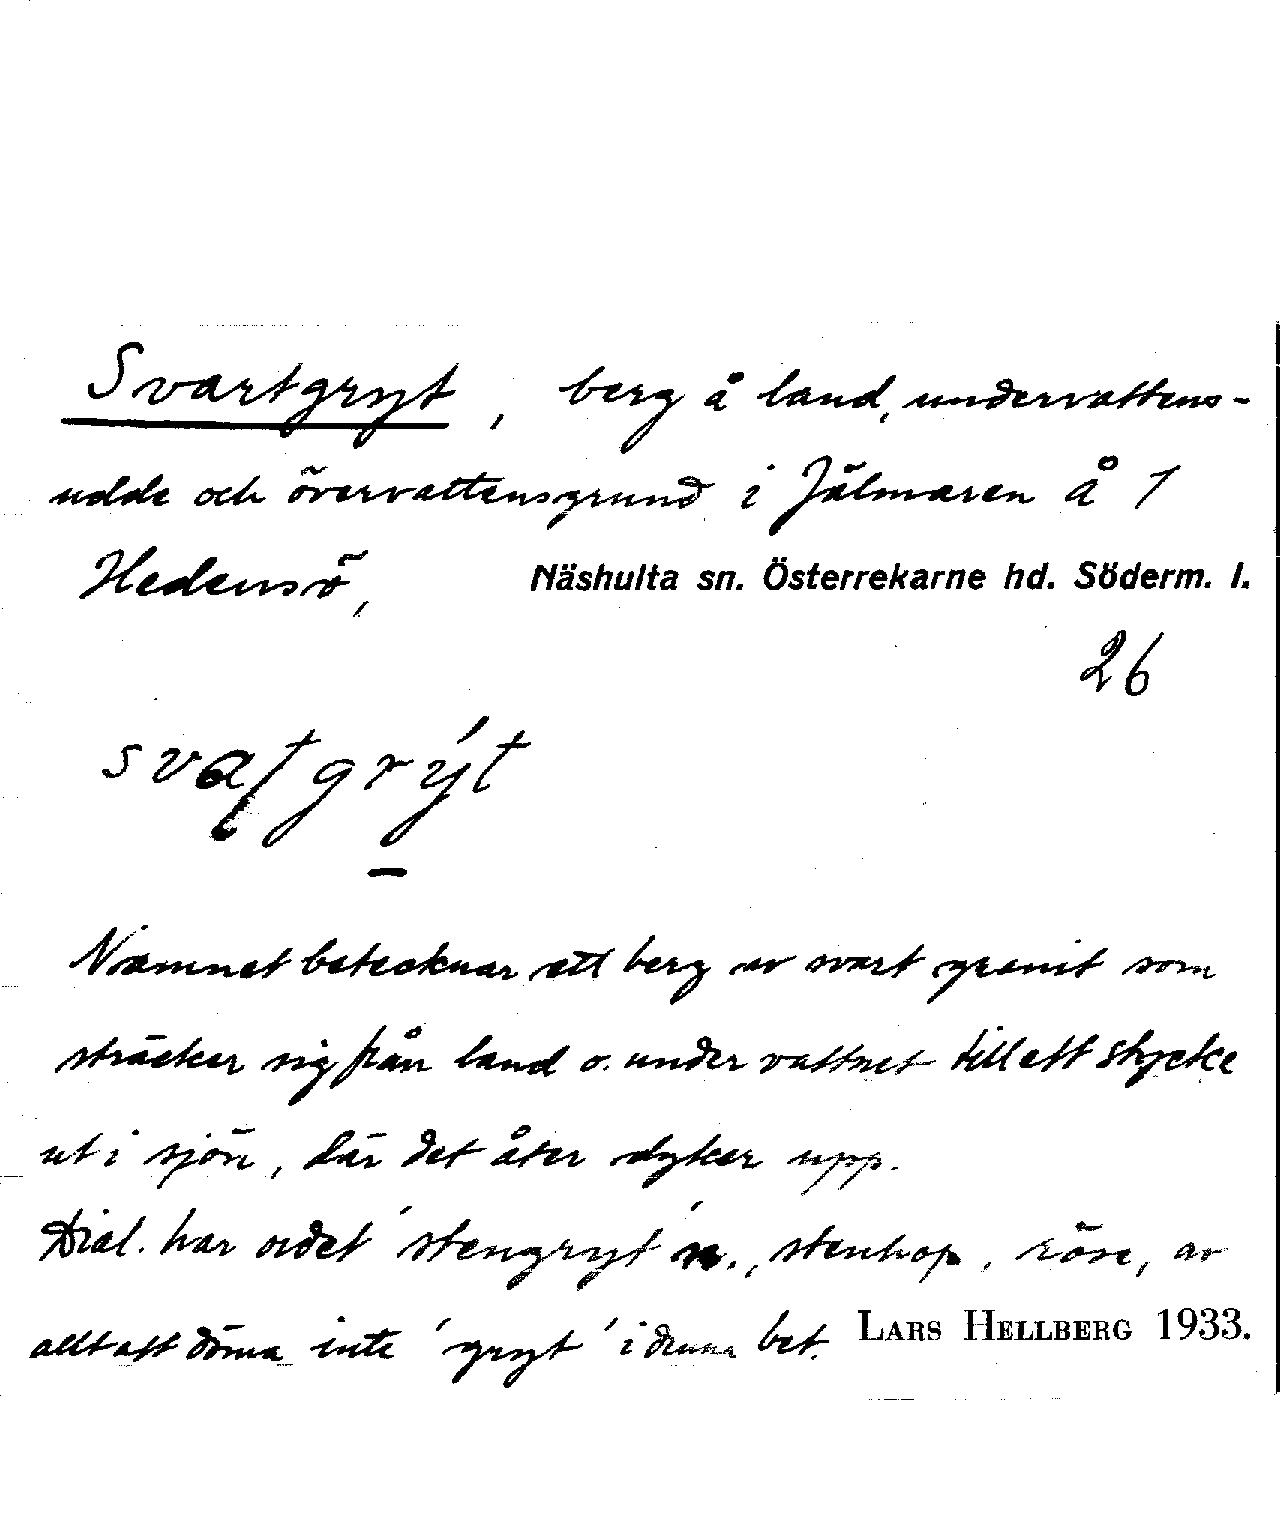 Svartgryt, berg å land, undervattens-
udde och övervattensgrund i Jälmaren å 1
Hedensö, Näshulta sn. Österrekarne hd. Söderm. l.
26
svaţgrýt
Namnet betecknar ett berg av svart granit som
sträcker sig från land o. under vattnet till ett stycke
ut i sjön, där det åter dyker upp.
Dial. har ordet 'stengryt' n., stenhop, röse, av
allt att döma inte 'gryt' i denna bet. LARS HELLBERG 1933.